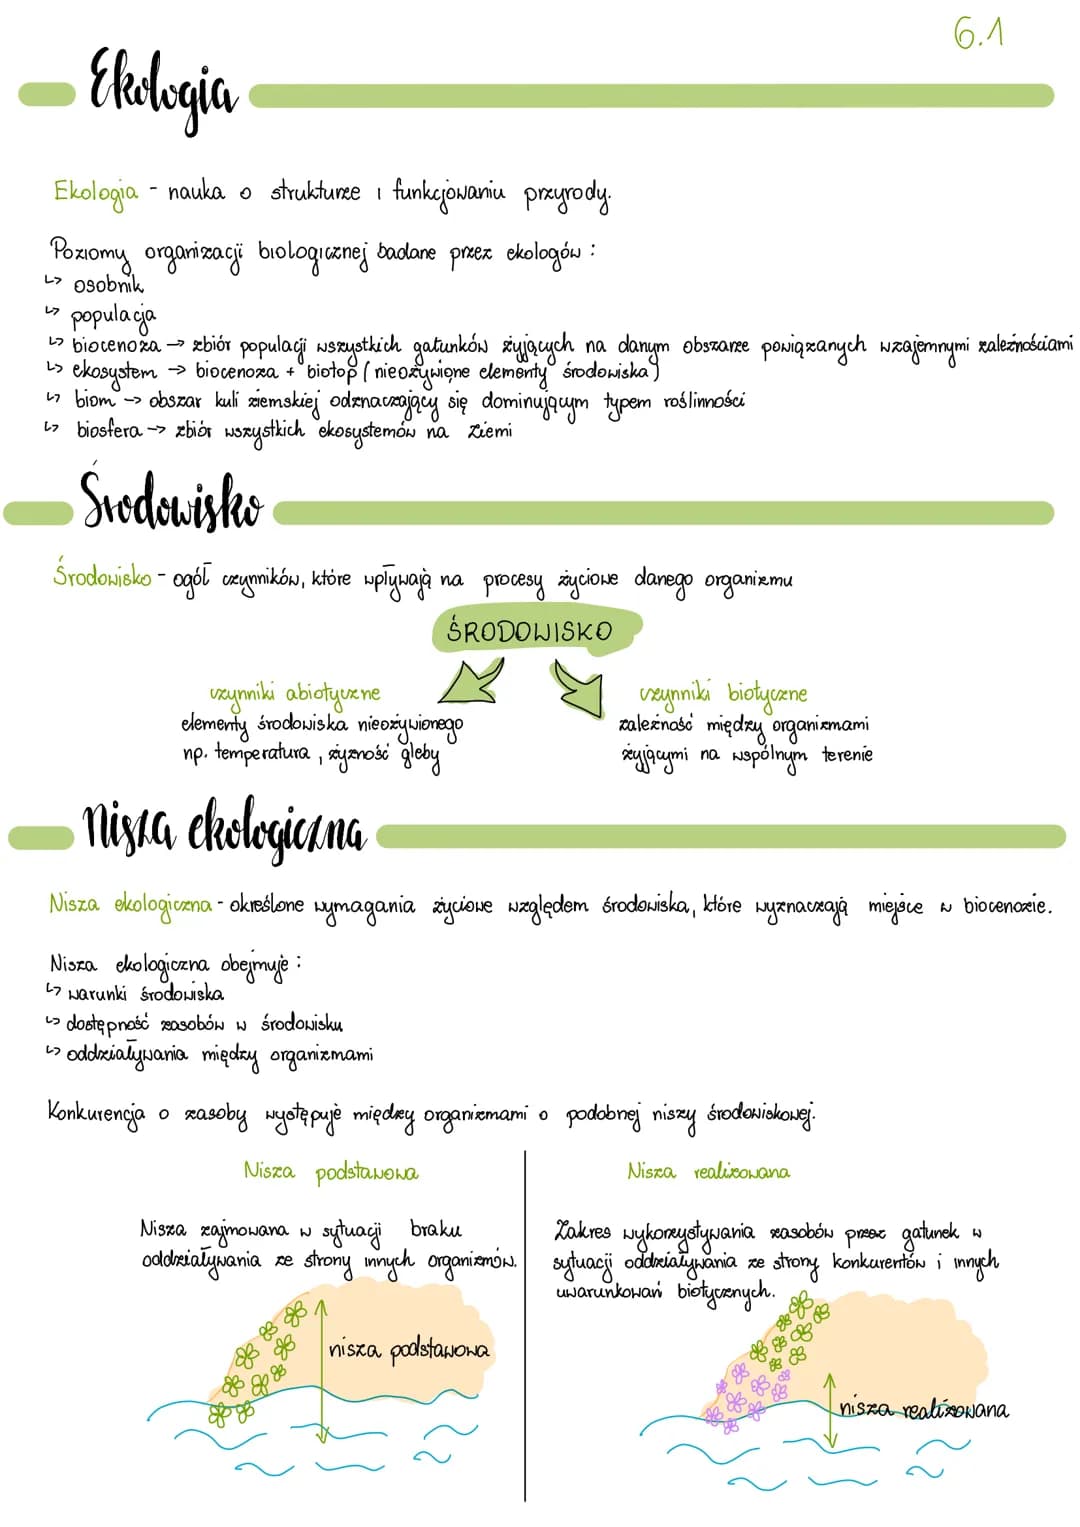 6.1
Ekologia
Ekologia - nauka o strukturze i funkcjowaniu przyrody.
Poziomy organizacji biologicznej badane przez ekologów :
↳ osobnik
↳ populacja
↳ biocenoza → zbiór populacji wszystkich gatunków żyjących na danym obszarze powiązanych wzajemnymi zależnościami
↳ ekosystem → biocenoza + biotop (nieożywione elementy środowiska)
↳ biom → obszar kuli ziemskiej odznaczający się dominującym typem roślinności
↳ biosfera → zbiór wszystkich ekosystemów na Ziemi
Środowisko
Środowisko - ogół czynników, które wpływają na procesy życiowe danego organizmu
ŚRODOWISKO
czynniki abiotyczne
elementy środowiska nieożywionego
np. temperatura, żyzność gleby
czynniki biotyczne
zależność między organizmami
żyjącymi na wspólnym terenie
Nisza ekologiczna
Nisza ekologiczna - określone wymagania życiowe względem środowiska, które wyznaczają miejsce w biocenozie.
Nisza ekologiczna obejmuje :
↳ warunki środowiska
↳ dostępność zasobów w środowisku
↳ oddziaływania między organizmami
Konkurencja o zasoby występuje między organizmami o podobnej niszy środowiskowej.
Nisza podstawowa
Nisza zajmowana w sytuacji braku
oddziaływania ze strony innych organizmów.
nisza podstawowa
Nisza realizowana
Zakres wykorzystywania zasobów przez gatunek w
sytuacji oddziaływania ze strony konkurentów i innych
uwarunkowań biotycznych.
nisza realizowana